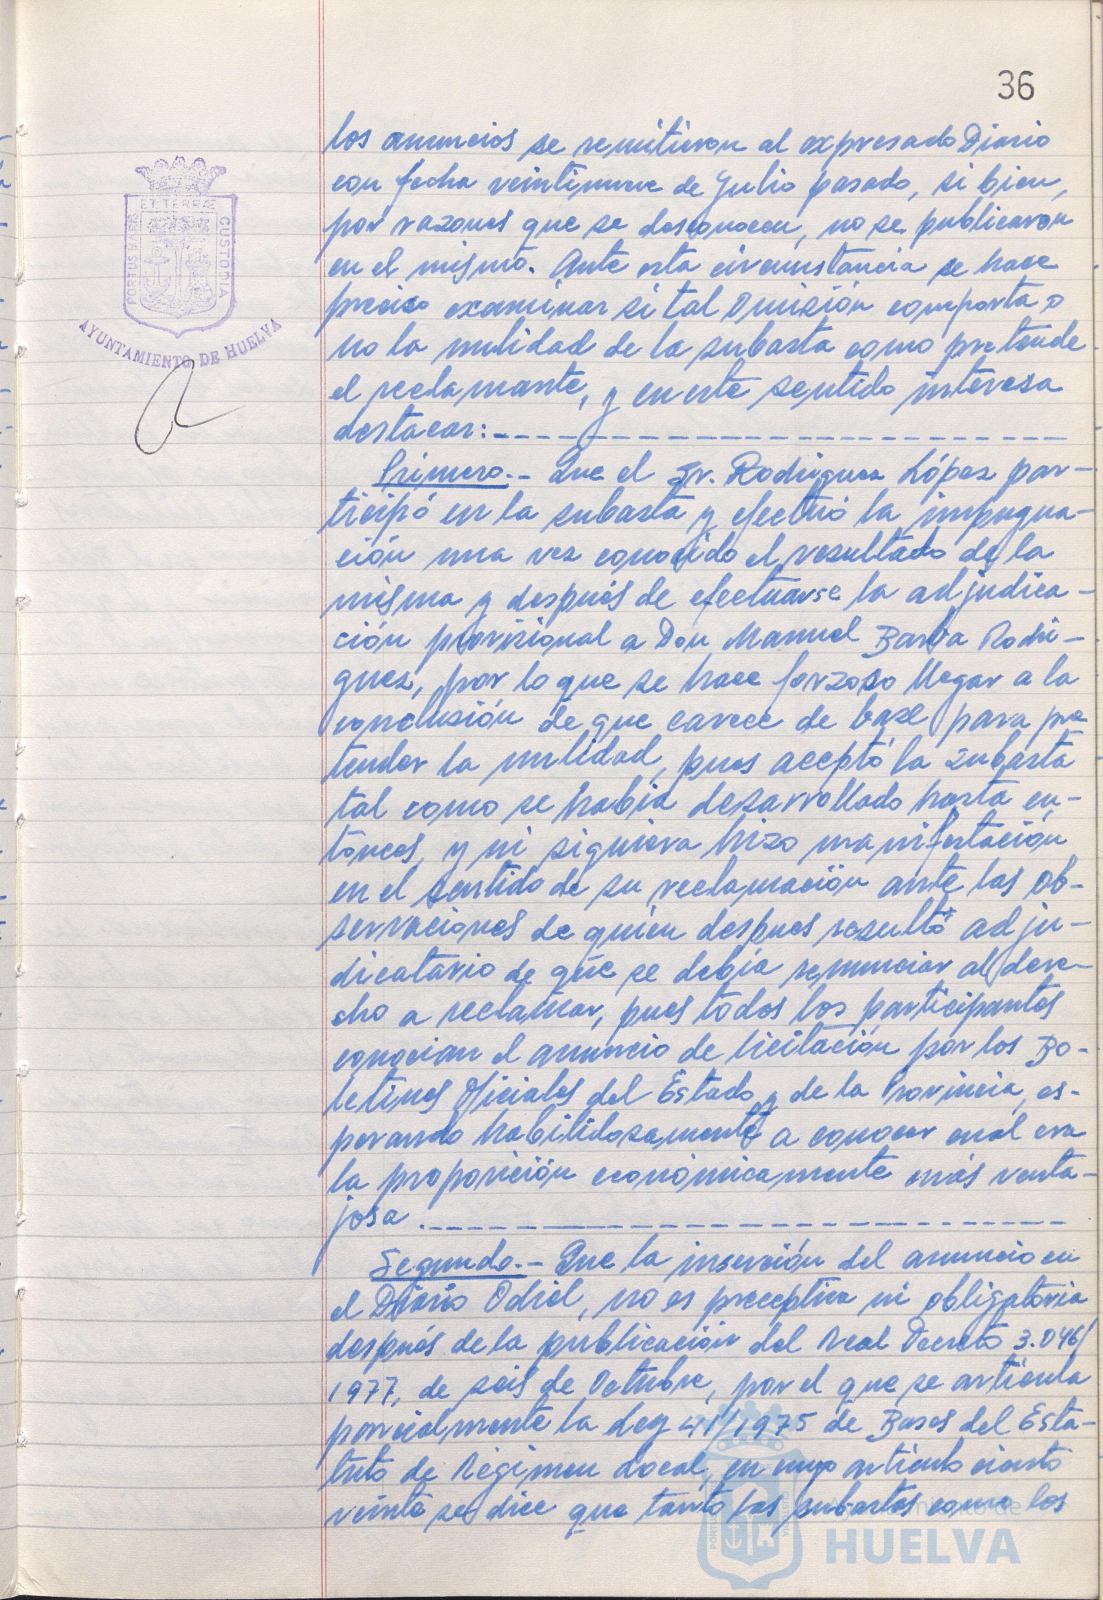 36
los anuncios se remitieron al expresado Diario
con fecha veintinueve de Julio pasado, si bien,
por razones que se desconocen, no se publicaron
en el mismo. Ante esta circunstancia se hace
preciso examinar si tal omisión comporta o
no la nulidad de la subasta como pretende
el reclamante, y en este sentido interesa
destacar:
Primero.- Que el Sr. Rodriguez López par-
ticipó en la subasta y efectuó la impugna-
ción una vez conocido el resultado de la
misma y después de efectuarse la adjudica-
ción provisional a Don Manuel Barba Rodri-
guez, por lo que se hace forzoso llegar a la
conclusión de que carece de base para pre
tender la nulidad, pues aceptó la subasta
tal como se había desarrollado hasta en-
tonces, y ni siquiera hizo manifestación
en el sentido de su reclamación ante las ob-
servaciones de quien despues resultó adju-
dicatario de que se debía renunciar al dere-
cho a reclamar, pues todos los participantes
conocian el anuncio de licitación por los Bo-
letines Oficiales del Estado y de la Provincia, es-
perando habilidosamente a conocer cual era
la proposición económicamente más venta-
josa.
Segundo.- Que la inserción del anuncio en
el Diario Odiel, no es preceptiva ni obligatoria
después de la publicación del Real Decreto 3.046/
1977, de seis de Octubre, por el que se articula
parcialmente la Ley 41/1975 de Bases del Esta-
tuto de Régimen Local, en cuyo artículo ciento
veinte se dice que tanto las subastas como los
ET TERRAE
PORTUS MARIS
CUSTODIA
AYUNTAMIENTO DE HUELVA
Ayuntamiento de
HUELVA